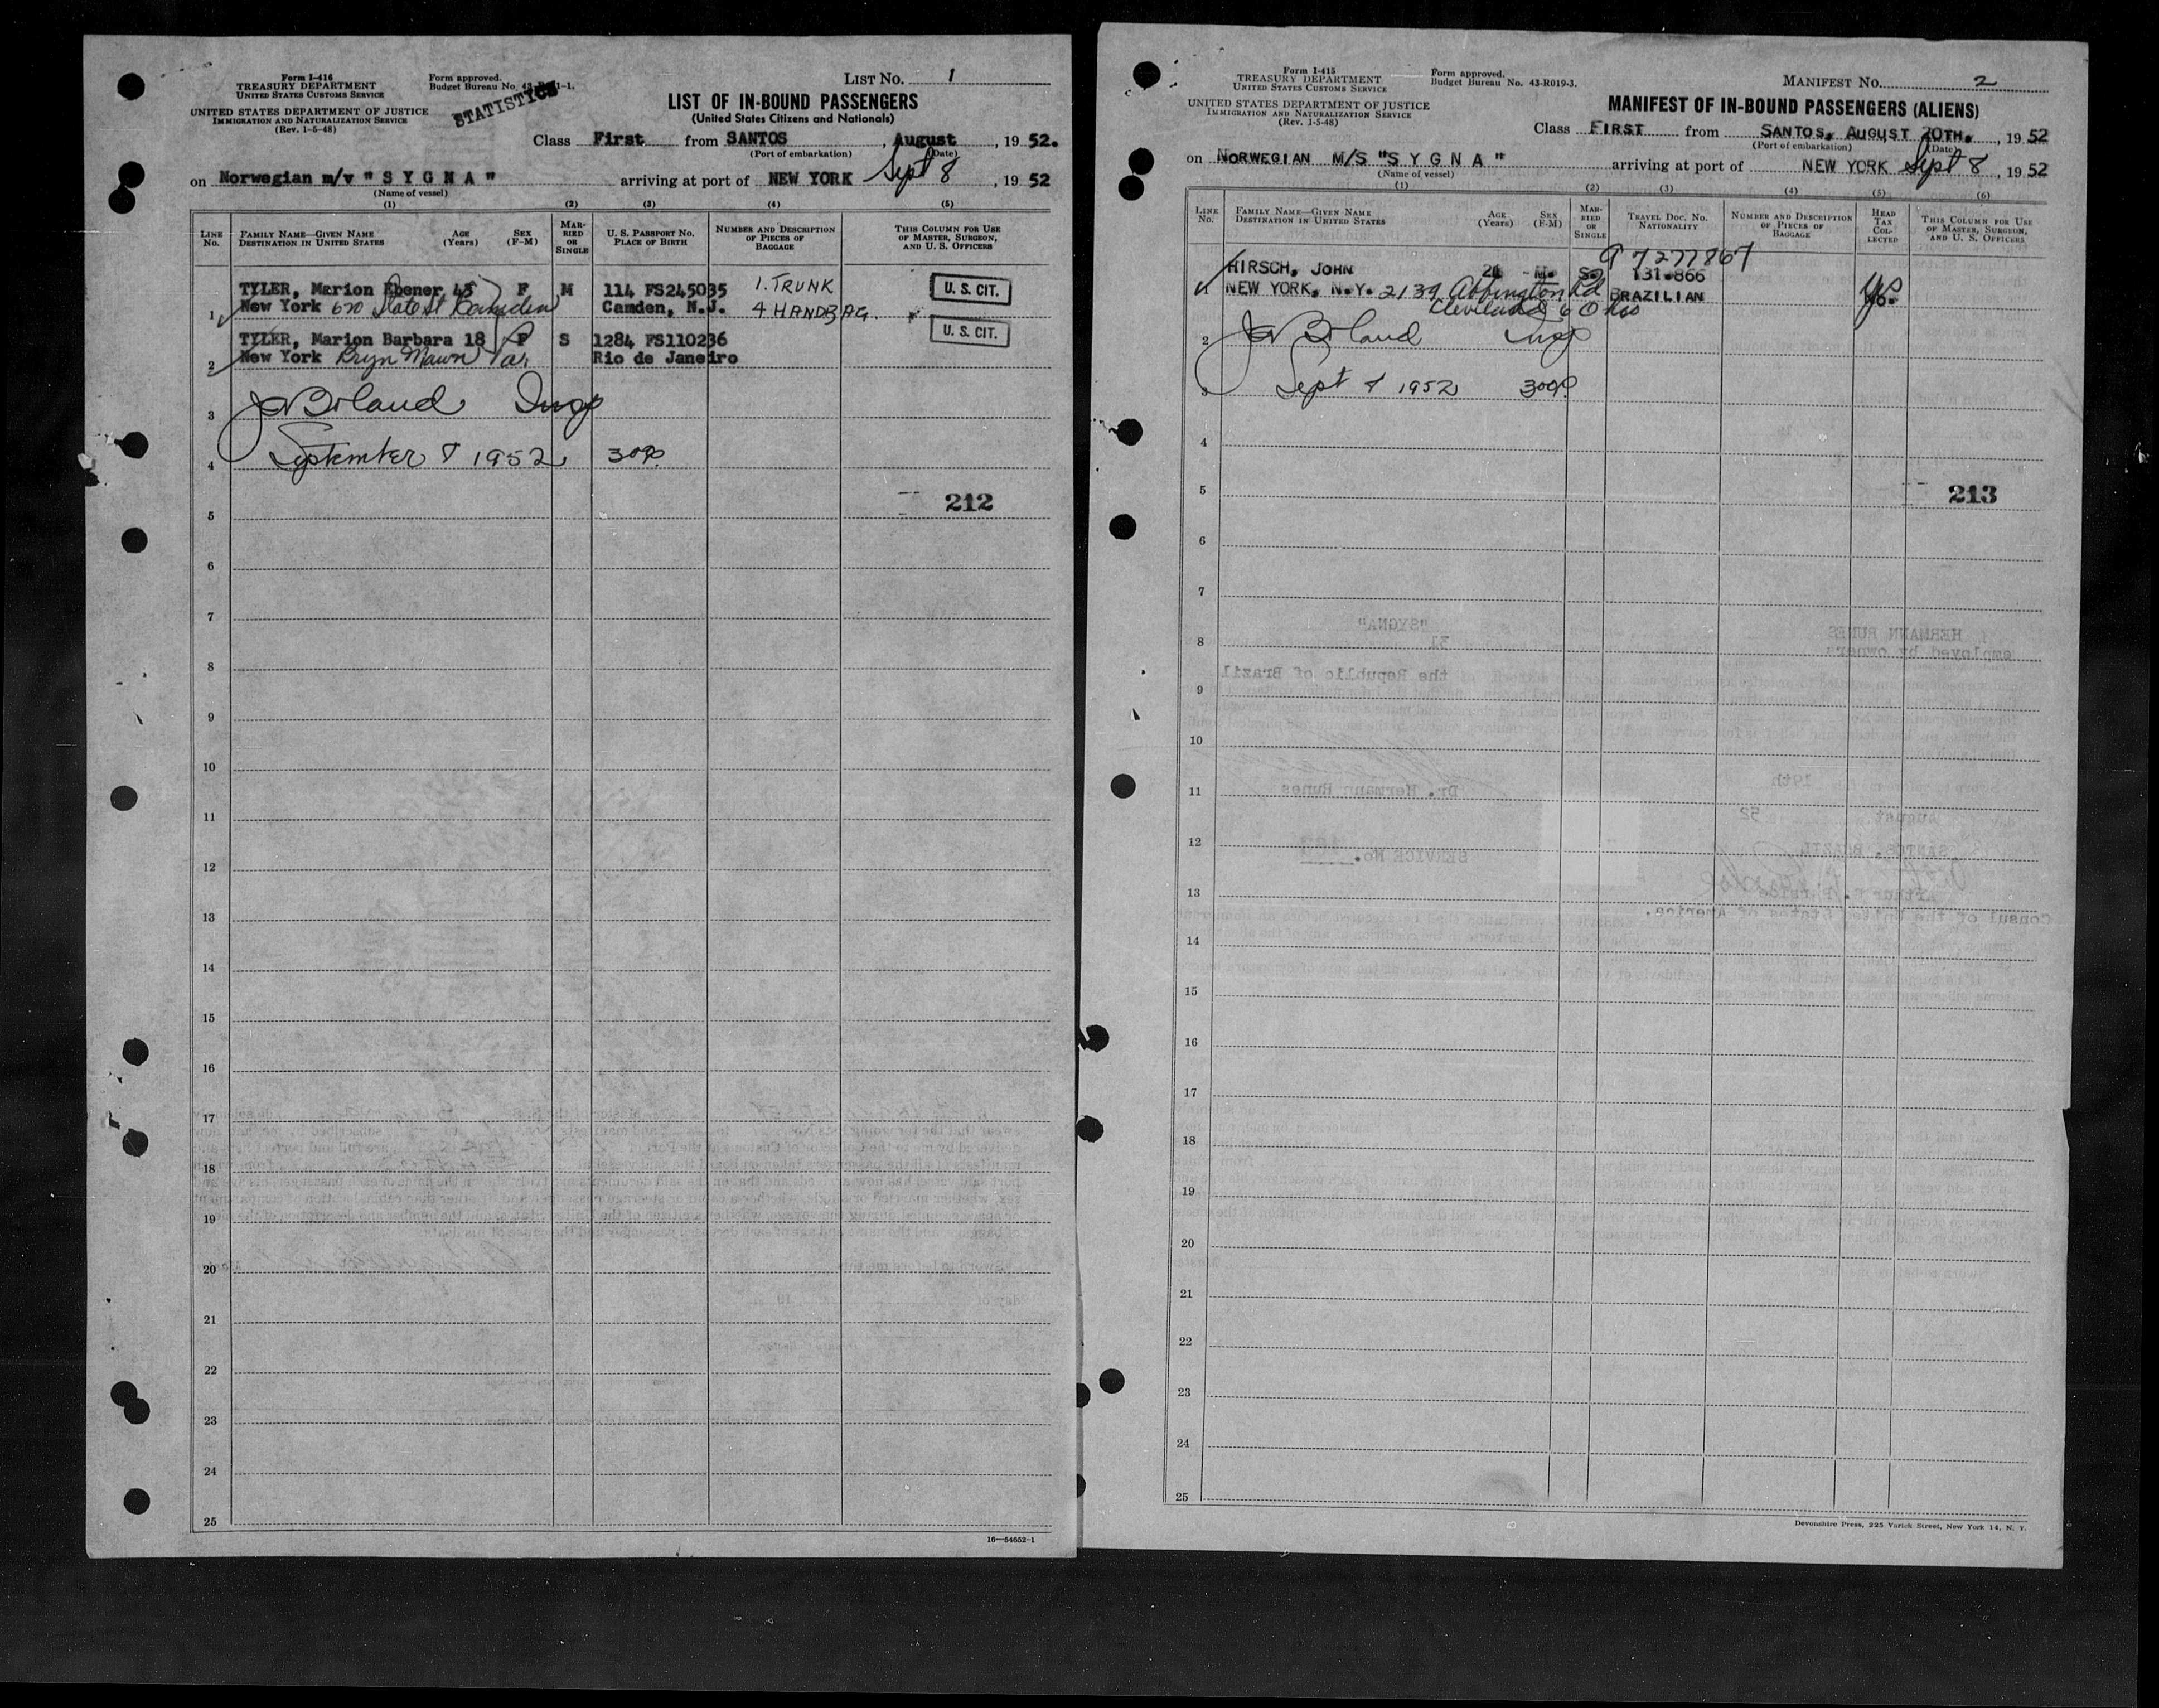 Form I-416
TREASURY DEPARTMENT
UNITED STATES CUSTOMS SERVICE
UNITED STATES DEPARTMENT OF JUSTICE
IMMIGRATION AND NATURALIZATION SERVICE
(Rev. 1-5-48)
Form approved.
Budget Bureau No. 43-
STATISTICS
LIST NO. 1
LIST OF IN-BOUND PASSENGERS
(United States Citizens and Nationals)
Class First from SANTOS, August, 1952.
(Port of embarkation) (Date)
on Norwegian m/v " S Y G N A " arriving at port of NEW YORK Sept 8, 1952
(Name of vessel)
(1) (2) (3) (4) (5)
LINE No. FAMILY NAME—GIVEN NAME DESTINATION IN UNITED STATES AGE (Years) SEX (F-M) MARRIED OR SINGLE U. S. PASSPORT NO. PLACE OF BIRTH NUMBER AND DESCRIPTION OF PIECES OF BAGGAGE THIS COLUMN FOR USE OF MASTER, SURGEON, AND U. S. OFFICERS
TYLER, Marion Ebener 45 F M 114 FS245035 1. TRUNK U. S. CIT.
1 New York 670 State St Camden Camden, N.J. 4 HANDBAG.
TYLER, Marion Barbara 18 F S 1284 FS110236 U. S. CIT.
2 New York Bryn Mawr Pa. Rio de Janeiro
3 Boland Insp
4 September 8 1952 300P
212
5
6
7
8
9
10
11
12
13
14
15
16
17
18
19
20
21
22
23
24
25
16—54652-1
Form I-415
TREASURY DEPARTMENT
UNITED STATES CUSTOMS SERVICE
UNITED STATES DEPARTMENT OF JUSTICE
IMMIGRATION AND NATURALIZATION SERVICE
(Rev. 1-5-48)
Form approved.
Budget Bureau No. 43-R019-3.
MANIFEST NO. 2
MANIFEST OF IN-BOUND PASSENGERS (ALIENS)
Class FIRST from SANTOS, AUGUST 20TH., 1952
(Port of embarkation) (Date)
on NORWEGIAN M/S "S Y G N A " arriving at port of NEW YORK Sept 8, 1952
(Name of vessel)
(1) (2) (3) (4) (5) (6)
LINE No. FAMILY NAME—GIVEN NAME DESTINATION IN UNITED STATES AGE (Years) SEX (F-M) MARRIED OR SINGLE TRAVEL DOC. NO. NATIONALITY NUMBER AND DESCRIPTION OF PIECES OF BAGGAGE HEAD TAX COLLECTED THIS COLUMN FOR USE OF MASTER, SURGEON, AND U. S. OFFICERS
HIRSCH, JOHN M. S. 131.866
1 NEW YORK, N.Y. 2139 Abbington Rd BRAZILIAN
Cleveland 6 Ohio
2 Boland Insp
3 Sept 8 1952 300P
4
213
5
6
7
8
9
10
11
12
13
14
15
16
17
18
19
20
21
22
23
24
25
Devonshire Press, 225 Varick Street, New York 14, N. Y.